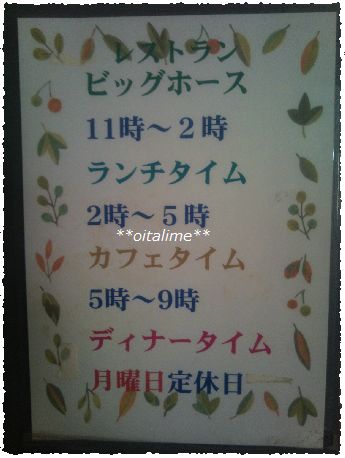 レストラン
ビッグホース
11時～2時
ランチタイム
2時～5時
**oitalime**
カフェタイム
5時～9時
ディナータイム
月曜日定休日